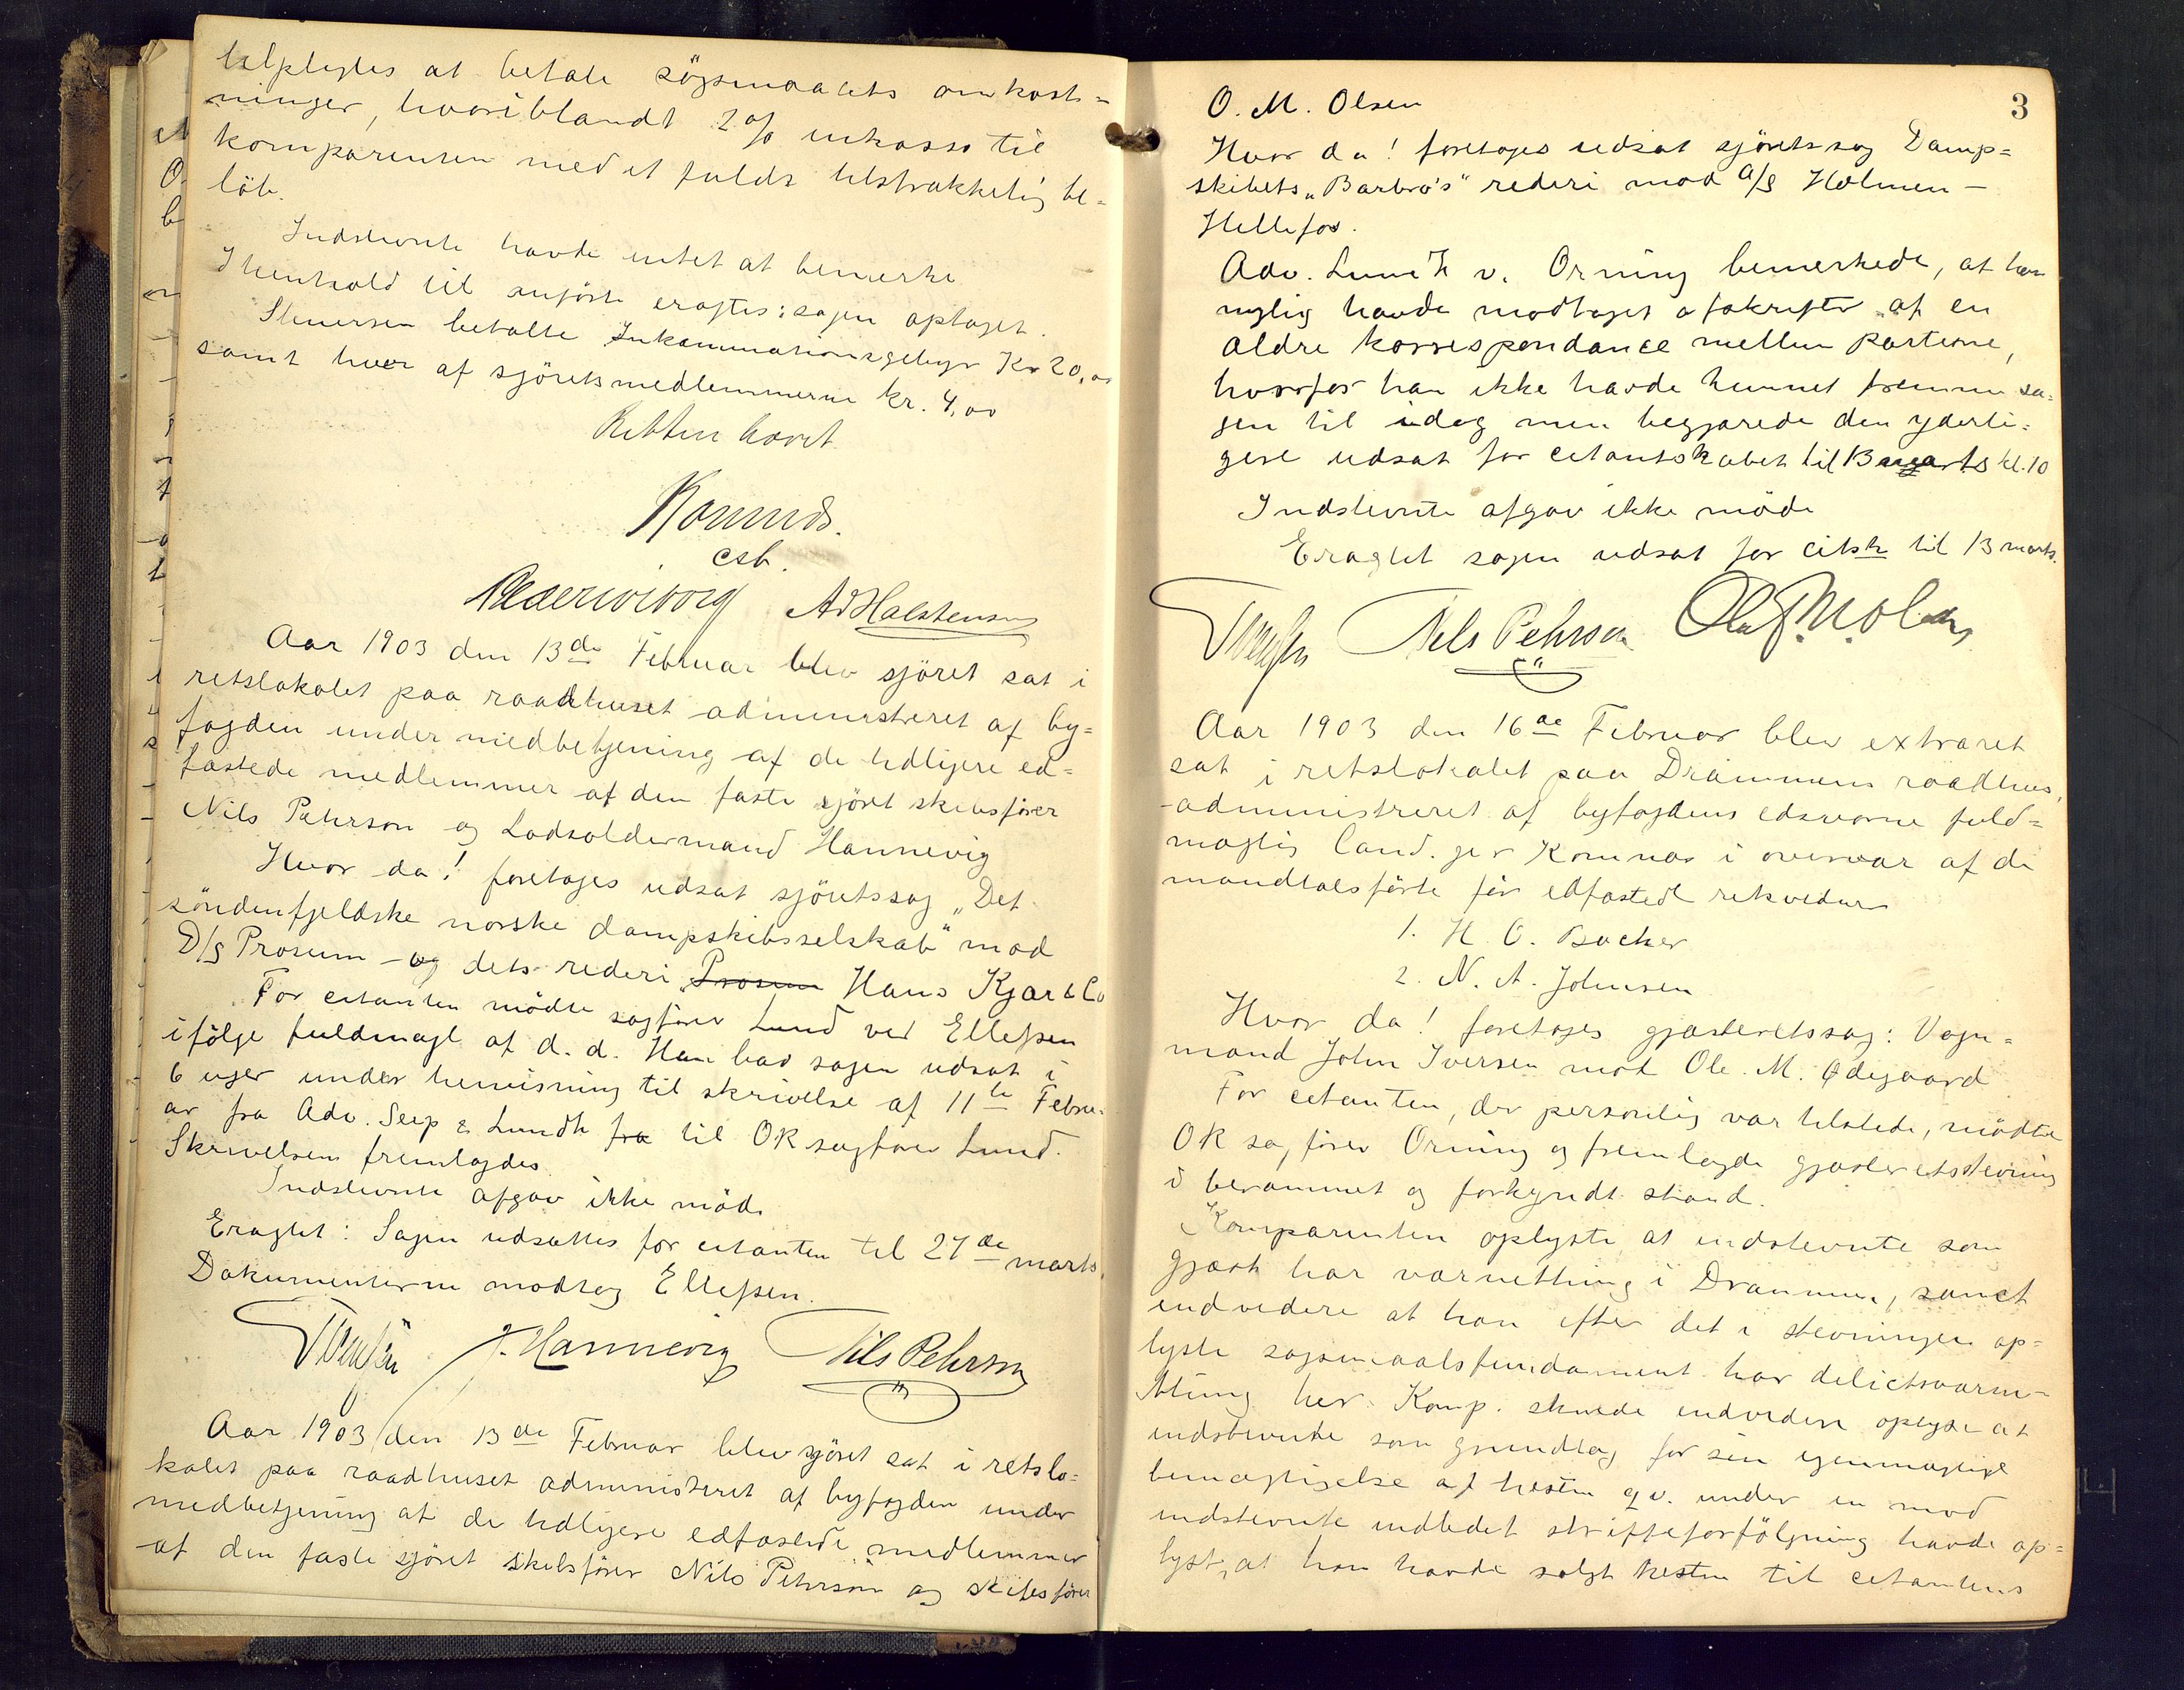 tilpligtes at betale sögsmaalets omkost-
ninger, hvoriblandt 2% inkasso til
komparenten med et fuldt tilstrækkelig be-
löb.
Indstevnte havde intet at bemerke
I henhold til anförte eragtes: sagen optaget.
betalte Inkaminationsgebyr Kr 20,00
samt hver af sjöretsmedlemmerne kr. 4,00
Retten hævet
Komnæs.
esb.
AdHalstensen
Aar 1903 den 13de Februar blev sjöret sat i
retslokalet paa raadhuset administreret af by-
fogden under medbetjening af de tidligere ed-
fæstede medlemmer af den faste sjöret skibsförer
Nils Pehrson og Lodsoldermand Hannevig
Hvor da! foretoges udsat sjöretssag „Det
söndenfjeldske norske dampskibsselskab" mod
D/S Prosum og dets rederi Prosum Hans Kjær & Co
For citanten mödte sagförer Lund ved Ellefsen
ifölge fuldmagt af d.d. Han bad sagen udsat i
6 uger under henvisning til skrivelse af 11te Febru-
ar fra Adv. Seip & Lundh fra til OR sagförer Lund.
Skrivelsen fremlagdes.
Indstevnte afgav ikke möde
Eragtet: Sagen udsættes for citanten til 27de marts.
Dokumenterne modtog Ellefsen.
J. Hannevig Nils Pehrson
Aar 1903 den 13de Februar blev sjöret sat i retslo-
kalet paa raadhuset administreret af byfogden under
medbetjening af de tidligere edfæstede medlemmer
af den faste sjöret skibsförer Nils Pehrson og skibsförer
3
O. M. Olsen
Hvor da! foretoges udsat sjöretssag Damp-
skibets „Barbro's" rederi mod A/S Holmen-
Hellefos.
Adv. Lundh v. Orning bemerkede, at han
nylig havde modtaget afskrifter af en
ældre korrespondance mellem parterne,
hvorfor han ikke havde kunnet fremme sa-
gen til idag men begjærede den yderli-
gere udsat for citantskabet til 13 marts kl. 10
Indstevnte afgav ikke möde
Eragtet sagen udsat for citsk til 13 marts.
Nils Pehrson Olaf M. Olsen
Aar 1903 den 16de Februar blev extraret
sat i retslokalet paa Drammens raadhus,
administreret af byfogdens edsvorne fuld-
mægtig Cand. jur Komnæs i overvær af de
mandtalsförte för edfæstede retsvidner
1. H. O. Backer
2. N. A. Johnsen
Hvor da! foretoges gjæsteretssag: Vogn-
mand John Iversen mod Ole. M. Ødegaard
For citanten, der personlig var tilstede, mödte
OR sagförer Orning og fremlagde gjæsteretsstevning
i berammet og forkyndt stand.
Komparenten oplyste at indstevnte som
gjæst har værnething i Drammen, samt
endvidere at han efter det i stevningen op-
lyste sögsmaalsfundament har delictsværne-
thing her. Komp. skulde endvidere oplyse at
indstevnte som grundlag for sin egenmægtige
bemægtigelse af hesten q.v. under en mod
indstevnte indledet strafforfölgning havde op-
lyst, at han havde solgt hesten til citantens